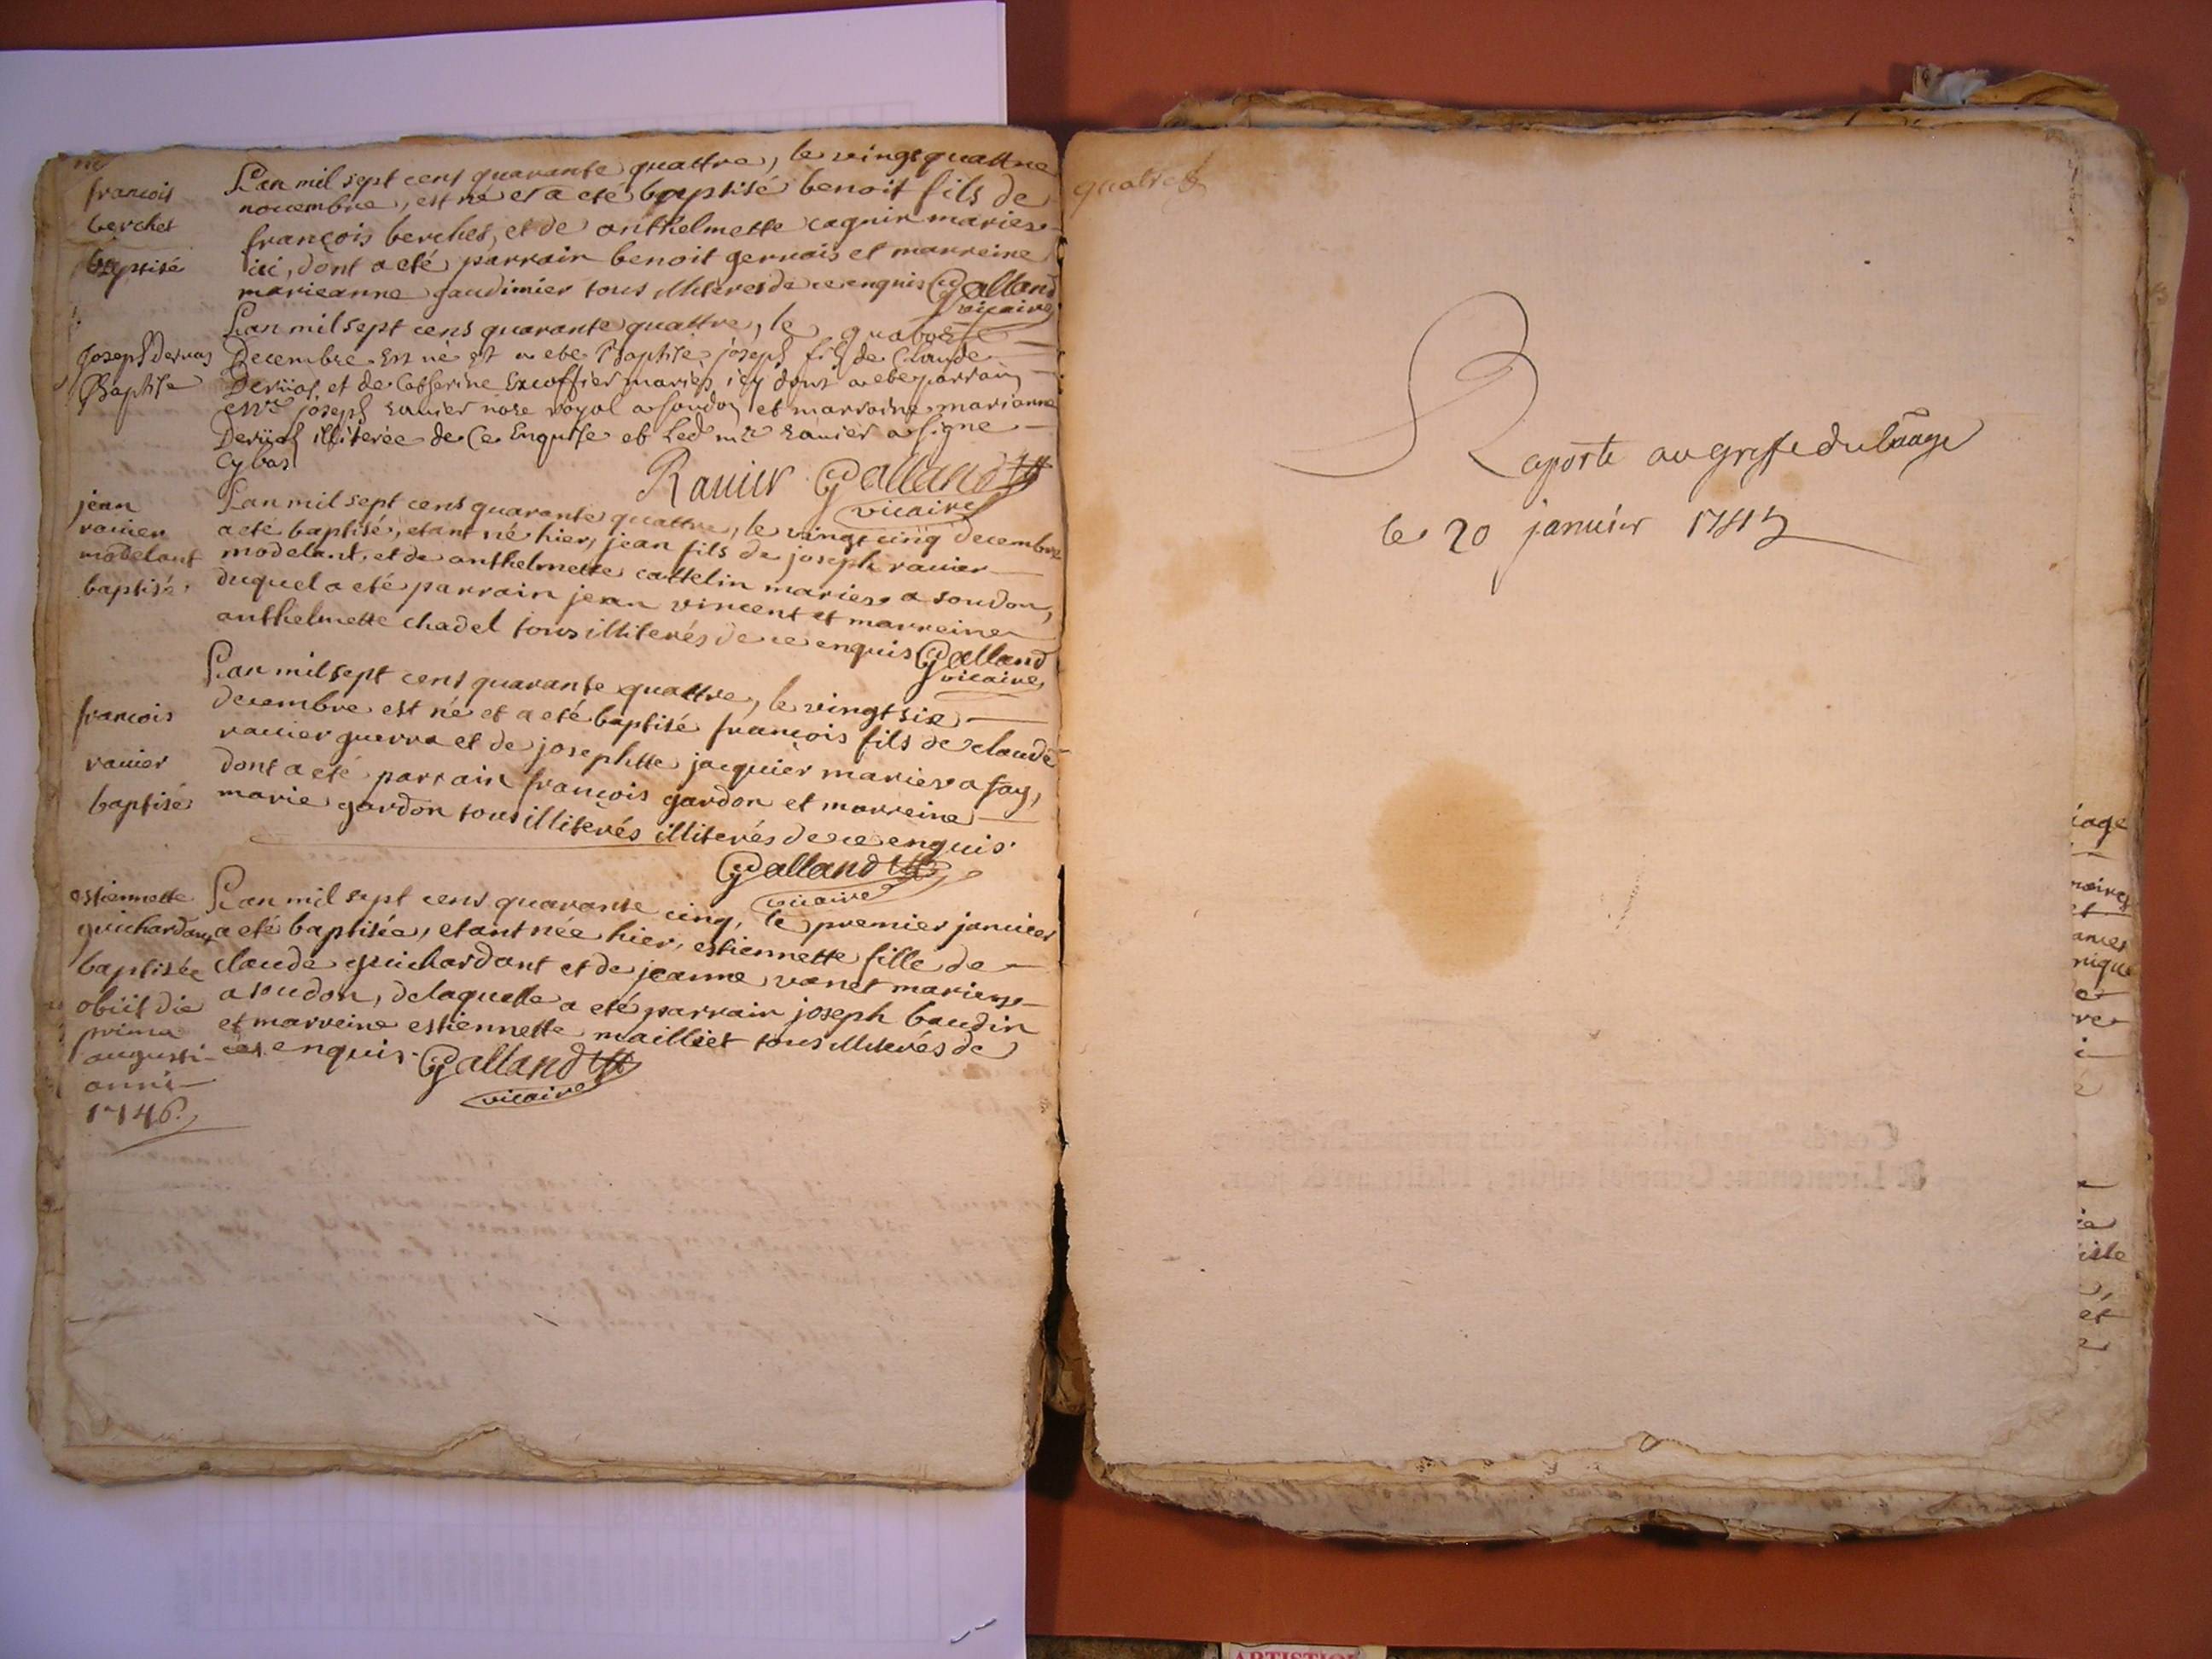 francois
berchet
baptisé
L'an mil sept cens quarante quattre, le vingt quattre
novembre, est né et a eté baptisé benoit fils de
françois berchet, et de anthelmette cagnin maries
ici, dont a eté parrain benoit gervais et marreine
marieanne gaudimier tous illiterés de ce enquis Galland
vicaire
Joseph Dervas
Baptise
L'an mil sept cens quarante quattre, le quatorse
Decembre Est né Et a ete Baptise joseph fils de Claude
et de Catherine Excoffier maries icy dont a ete parrain
joseph ravier royal a soudon et marraine marianne
illiterée de Ce Enquise et Led mre ravier a signe
Cy bas
Ravier Galland
vicaire
jean
ravier
modelant
baptisé
L'an mil sept cens quarante quattre, le vingt cinq decembre
a eté baptisé, etant né hier, jean fils de joseph ravier
modelant, et de anthelmette cattelin maries a soudon,
duquel a eté parrain jean vincent et marreine
anthelmette chadel tous illiterés de ce enquis Galland
vicaire
francois
ravier
baptisé
L'an mil sept cens quarante quattre, le vingt six
decembre est né et a eté baptisé françois fils de claude
ravier guerra et de josephtte jacquier maries a fay,
dont a eté parrain françois gardon et marreine
marie gardon tous illiterés illiterés de ce enquis.
Galland
vicaire
estiennette
guichardant
baptisée
obiit die
prima
augusti
anni
1746.
L'an mil sept cens quarante cinq, le premier janvier
a eté baptisée, etant née hier, estiennette fille de
claude guichardant et de jeanne vanet maries
a soudon, de laquelle a eté parrain joseph baudin
et marreine estiennette mailliet tous illiterés de
ce enquis. Galland
vicaire
quatre
Raporté au greffe du baage
le 20 janvier 1745